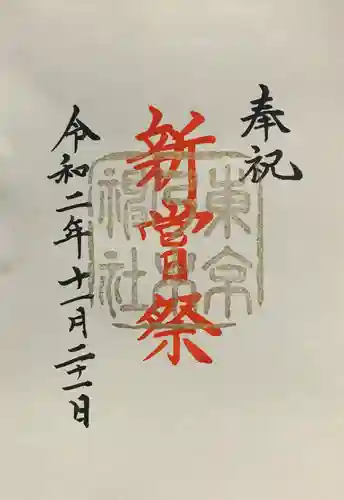 奉祝
新嘗祭
令和二年十一月二十一日
東京
神社